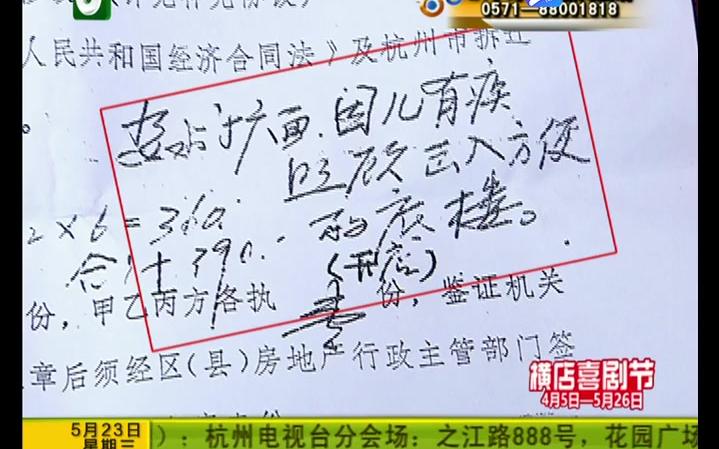 0571-88001818
人民共和国经济合同法》及杭州市拆迁
。
因儿有疾
照顾出入方便
2×6=360.
的底楼。
合计390.
(开店)
份，甲乙丙方各执 份，鉴证机关
章后须经区(县)房地产行政主管部门签
横店喜剧节
4月5日—5月26日
5月23日
星期三
)：杭州电视台分会场：之江路888号，花园广场